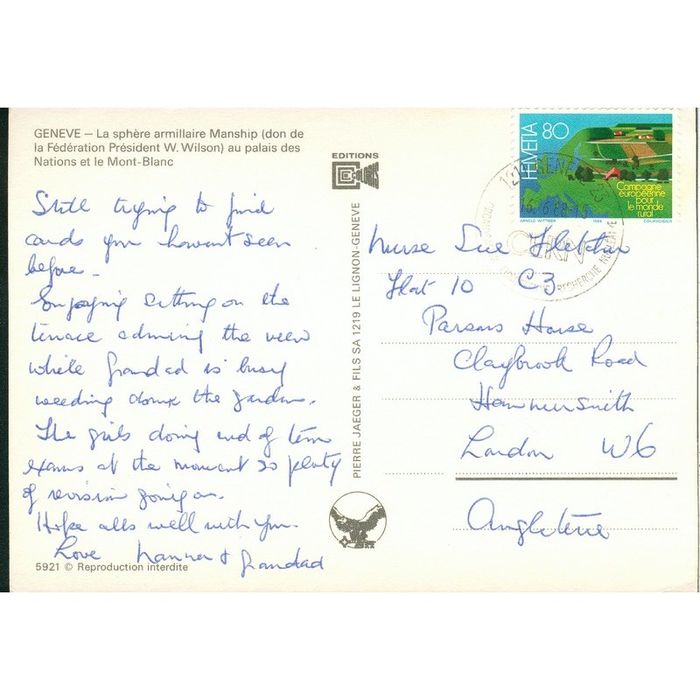 GENEVE – La sphère armillaire Manship (don de
la Fédération Président W. Wilson) au palais des
Nations et le Mont-Blanc
Still trying to find
cards you haven't seen
before -
Enjoying sitting on the
terrace admiring the view
while Grandad is busy
weeding down the garden.
The girls doing end of term
exams at the moment so plenty
of revision going on.
Hope alls well with you.
Love Nanna & Grandad
5921 © Reproduction interdite
EDITIONS
PIERRE JAEGER & FILS SA 1219 LE LIGNON-GENEVE
HELVETIA 80
Campagne
européenne
pour
le monde
rural
CERN
Nurse Sue Fletcher
Flat 10 C3
Parsons House
Claybrook Road
Hammersmith
London W6
Angleterre